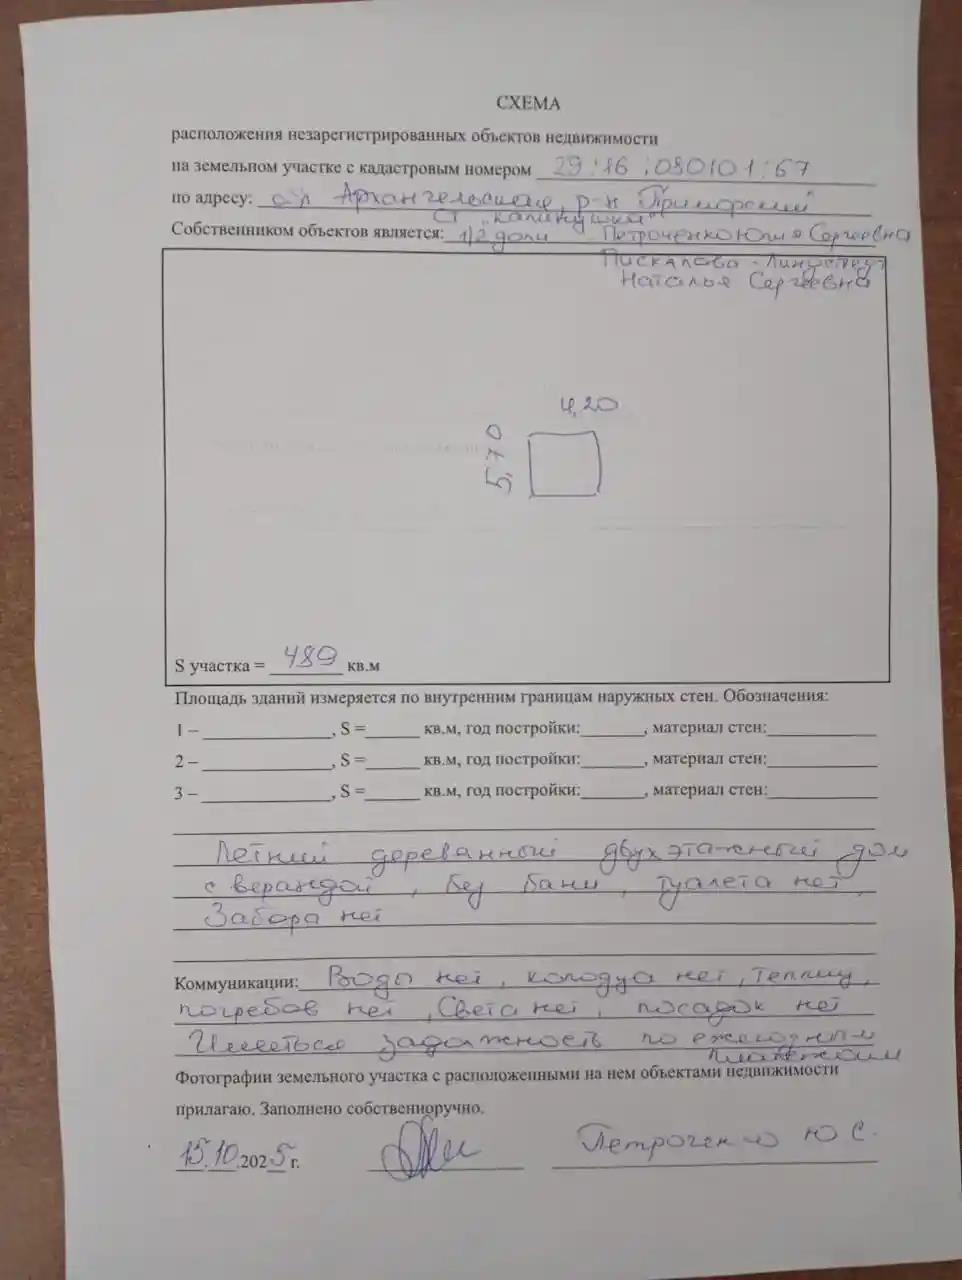 СХЕМА
расположения незарегистрированных объектов недвижимости
на земельном участке с кадастровым номером 29:16:080101:67
по адресу: обл Архангельская, р-н "Приморский"
СТ "Калинушка"
Собственником объектов является: 1/2 доли Петроченко Юлия Сергеевна
Пискалова-
Наталья Сергеевна
4,20
5,70
S участка = 489 кв.м
Площадь зданий измеряется по внутренним границам наружных стен. Обозначения:
1 – ____________, S =______ кв.м, год постройки:______, материал стен:____________
2 – ____________, S =______ кв.м, год постройки:______, материал стен:____________
3 – ____________, S =______ кв.м, год постройки:______, материал стен:____________
Летний дереванный двухэтажный дом
с верандой, без бани, туалета нет,
Забора нет
Коммуникации: Воды нет, колодца нет, теплиц,
погребов нет, Света нет, посадок нет
Имееться задолжность по ежегодным
платежам
Фотографии земельного участка с расположенными на нем объектами недвижимости
прилагаю. Заполнено собственноручно.
15.10.2025 г. Петроченко Ю С.